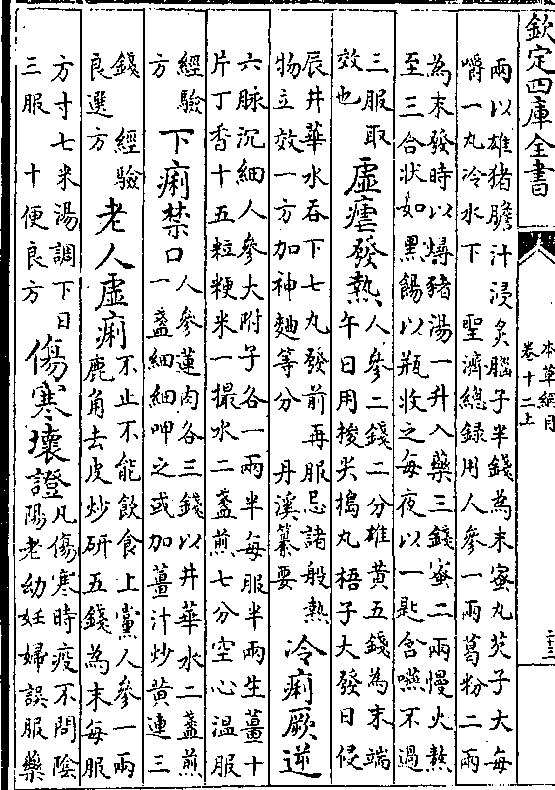 欽定四庫全書
本草綱目
卷十二上
兩以雄猪膽汁浸炙腦子半錢為末蜜丸芡子大每
嚼一丸冷水下 聖濟總録用人參一兩葛粉二兩
為末發時以燖豬湯一升入藥三錢蜜二兩慢火熬
至三合狀如黑餳以瓶收之每夜以一匙含嚥不過
三服取
效也
虛瘧發熱
人參二錢二分雄黃五錢為末端
午日用椶尖搗丸梧子大發日侵
辰井華水吞下七丸發前再服忌諸般熱
物立效一方加神麯等分 丹溪纂要
冷痢厥逆
六脉沉細人參大附子各一兩半每服半兩生薑十
片丁香十五粒粳米一撮水二盞煎七分空心温服
經驗
方
下痢禁口
人參蓮肉各三錢以井華水二盞煎
一盞細細呷之或加薑汁炒黃連三
錢 經驗
良選方
老人虛痢
不止不能飲食上黨人參一兩
鹿角去皮炒研五錢為末每服
方寸七米湯調下日
三服 十便良方
傷寒壞證
凡傷寒時疫不問陰
陽老幼妊婦誤服藥